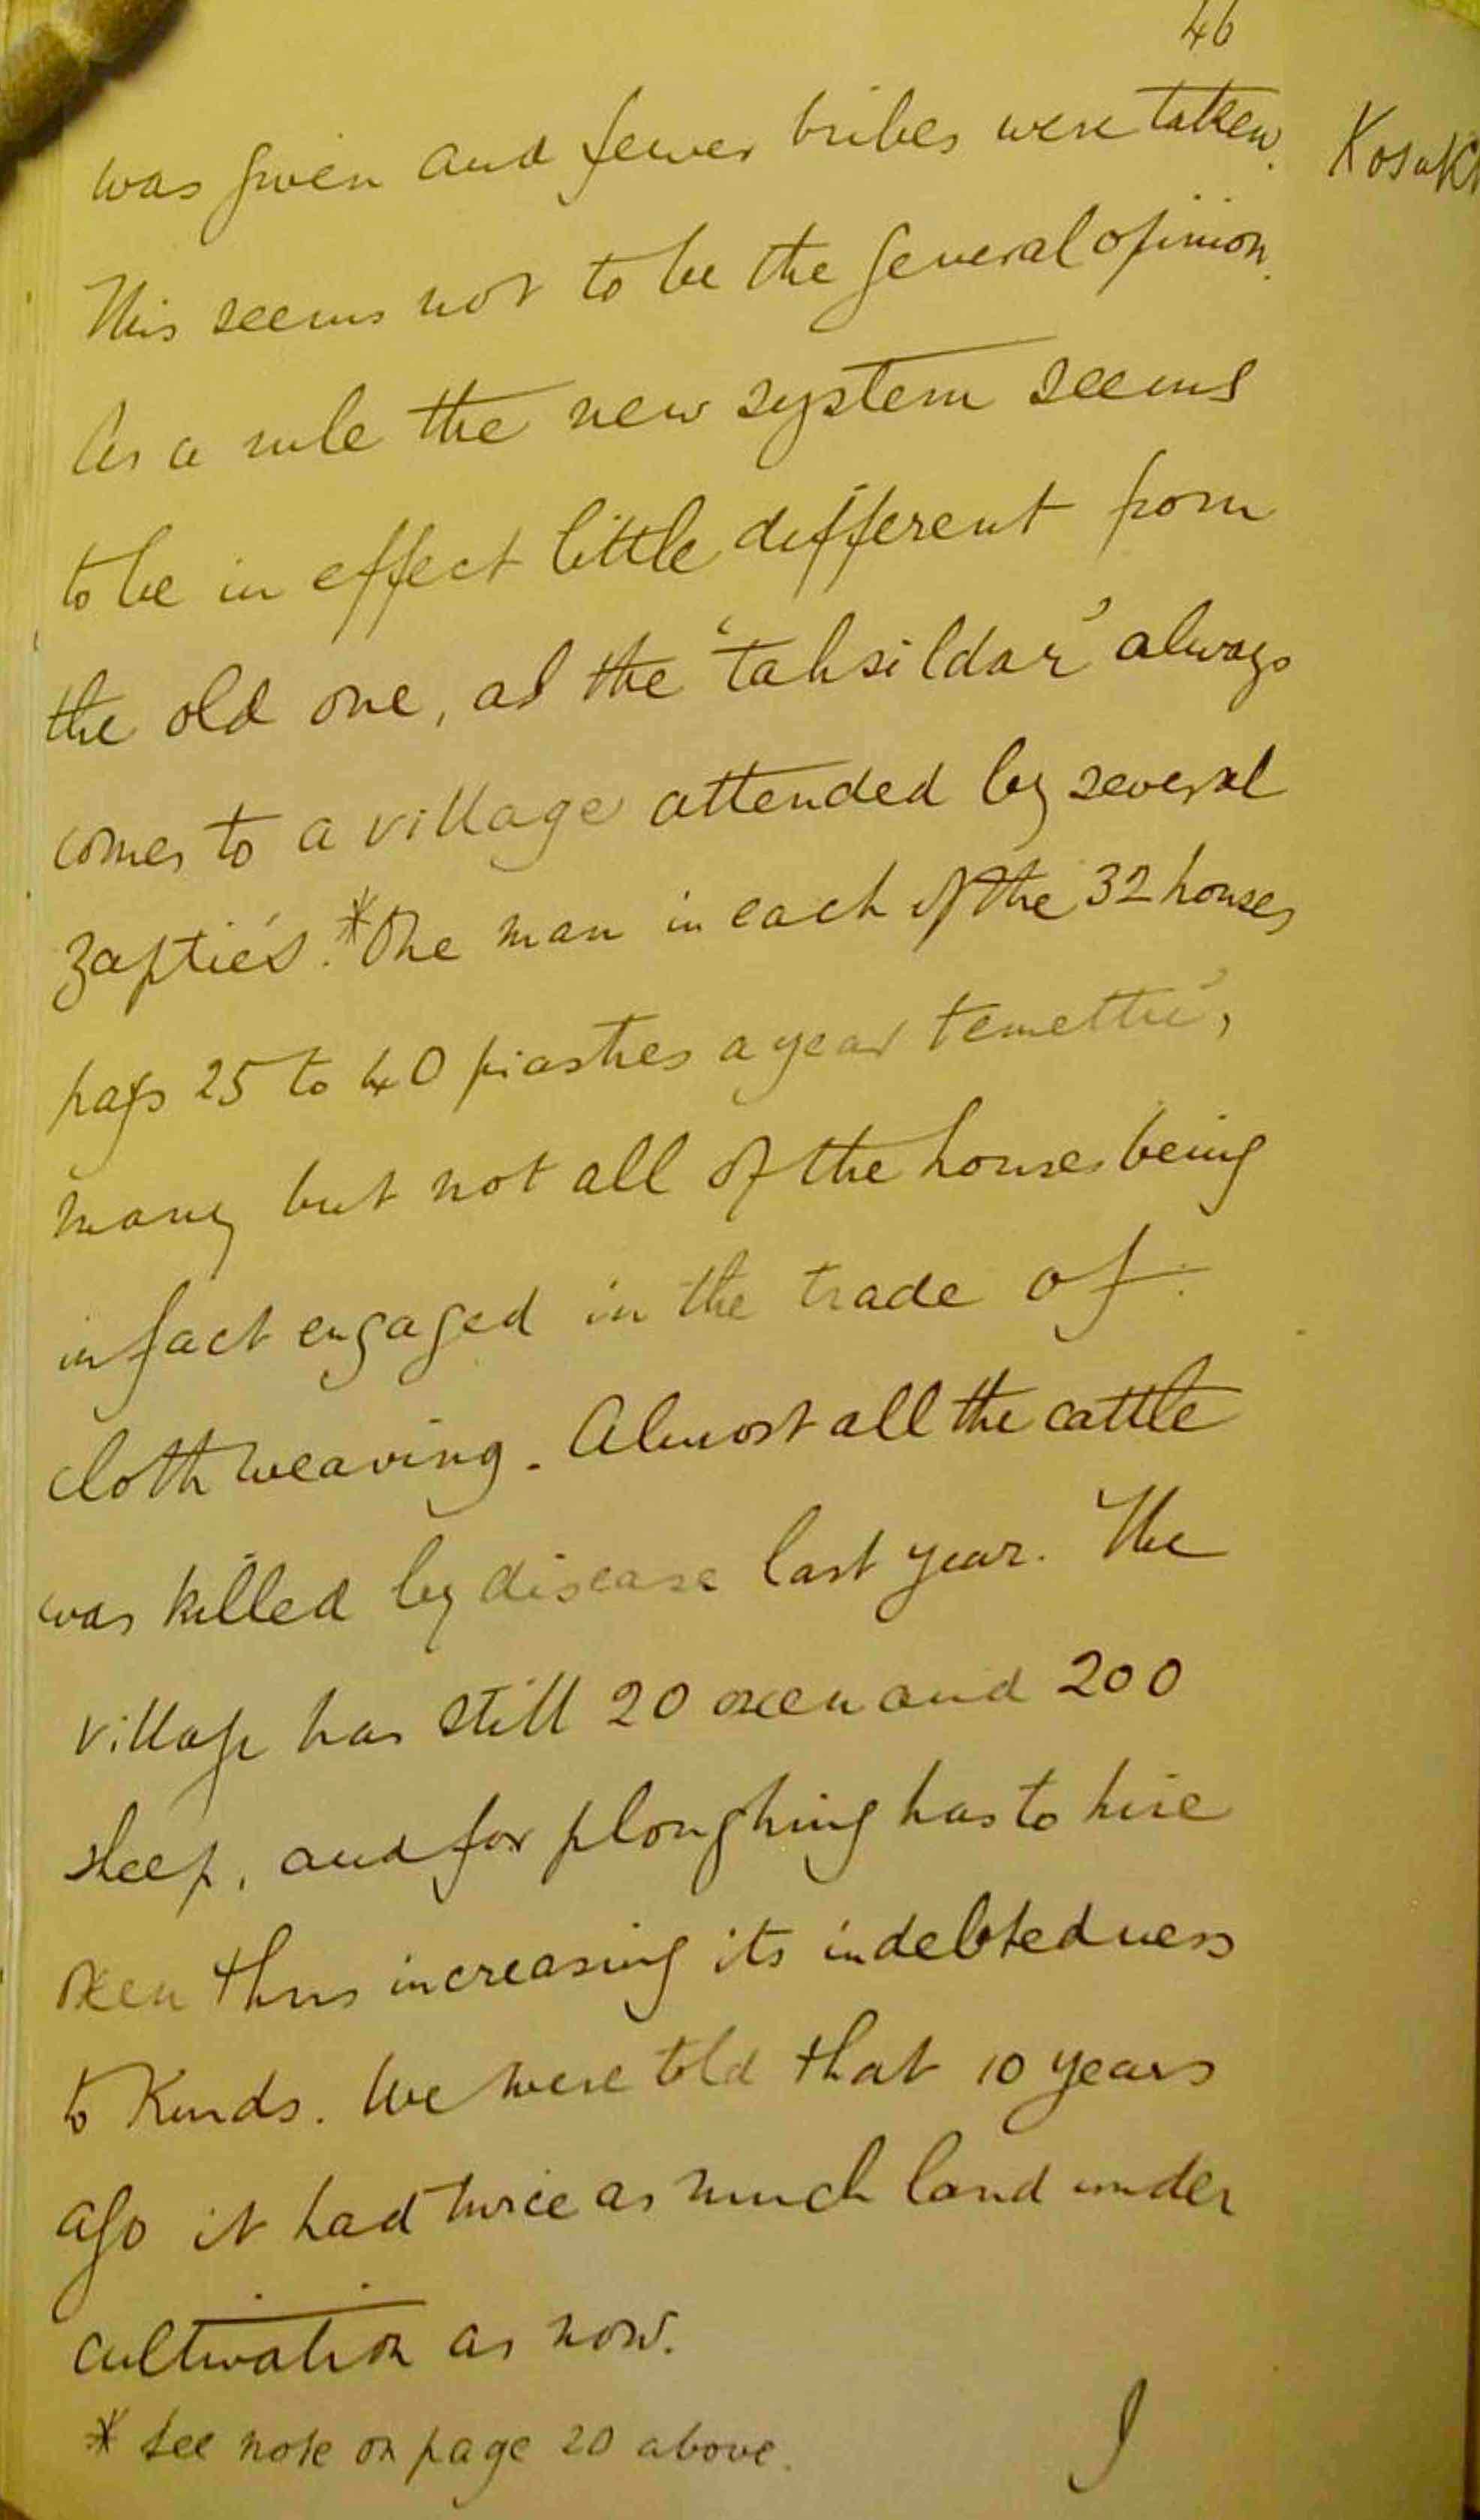 46
was given and fewer bribes were taken. Kosuk
This seems not to be the general opinion.
As a rule the new system seems
to be in effect little different from
the old one, as the 'tahsildar' always
comes to a village attended by several
zaptiés. * One man in each of the 32 houses
pays 25 to 40 piastres a year temettü,
many but not all of the houses being
in fact engaged in the trade of
cloth weaving. Almost all the cattle
was killed by disease last year. The
village has still 20 oxen and 200
sheep, and for ploughing has to hire
oxen thus increasing its indebtedness
to Kurds. We were told that 10 years
ago it had twice as much land under
cultivation as now.
* See note on page 20 above.
I